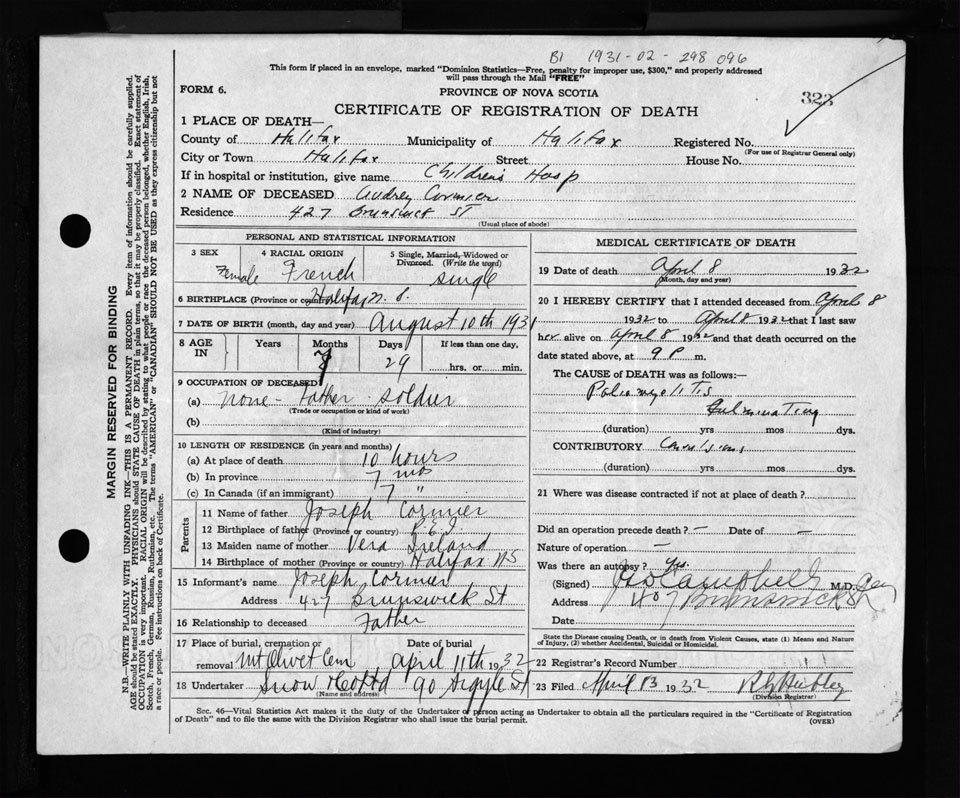 B1 1931-02-298 096
This form if placed in an envelope, marked "Dominion Statistics—Free, penalty for improper use, $300," and properly addressed
will pass through the Mail "FREE"
323
FORM 6.
PROVINCE OF NOVA SCOTIA
CERTIFICATE OF REGISTRATION OF DEATH
1 PLACE OF DEATH—
County of Halifax Municipality of Halifax Registered No.
(For use of Registrar General only)
City or Town Halifax Street House No.
If in hospital or institution, give name Children's Hosp
2 NAME OF DECEASED Audrey Cormier
Residence 427 Brunswick St
(Usual place of abode)
PERSONAL AND STATISTICAL INFORMATION
3 SEX 4 RACIAL ORIGIN 5 Single, Married, Widowed or Divorced. (Write the word)
Female French Single
6 BIRTHPLACE (Province or country) Halifax N. S.
7 DATE OF BIRTH (month, day and year) August 10th 1931
8 AGE IN Years Months Days If less than one day,
7 29 hrs. or min.
9 OCCUPATION OF DECEASED
(a) None - Father - Soldier
(Trade or occupation or kind of work)
(b)
(Kind of industry)
10 LENGTH OF RESIDENCE (in years and months)
(a) At place of death 10 hours
(b) In province 7 mos
(c) In Canada (if an immigrant) 7 "
Parents
11 Name of father Joseph Cormier
12 Birthplace of father (Province or country) P.E.I
13 Maiden name of mother Vera Ireland
14 Birthplace of mother (Province or country) Halifax NS
15 Informant's name Joseph Cormier
Address 427 Brunswick St
16 Relationship to deceased Father
17 Place of burial, cremation or removal Mt Olivet Cem Date of burial April 11th 1932
18 Undertaker Snow & Co Ltd 90 Argyle St
(Name and address)
MEDICAL CERTIFICATE OF DEATH
19 Date of death April 8 1932
(Month, day and year)
20 I HEREBY CERTIFY that I attended deceased from April 8
1932 to April 8 1932 that I last saw
her alive on April 8 1932 and that death occurred on the
date stated above, at 9 P m.
The CAUSE of DEATH was as follows:
Poliomyelitis
(duration) yrs mos dys.
CONTRIBUTORY
(duration) yrs mos dys.
21 Where was disease contracted if not at place of death?
Did an operation precede death? — Date of —
Nature of operation —
Was there an autopsy? Yes.
(Signed) Campbell M.D.
Address 407 Brunswick St
Date
State the Disease causing Death, or in death from Violent Causes, state (1) Means and Nature
of Injury, (2) whether Accidental, Suicidal or Homicidal.
22 Registrar's Record Number
23 Filed April 13 1932
(Division Registrar)
Sec. 46—Vital Statistics Act makes it the duty of the Undertaker or person acting as Undertaker to obtain all the particulars required in the "Certificate of Registration
of Death" and to file the same with the Division Registrar who shall issue the burial permit.
(OVER)
MARGIN RESERVED FOR BINDING
N.B.—WRITE PLAINLY WITH UNFADING INK—THIS IS A PERMANENT RECORD. Every item of information should be carefully supplied.
AGE should be stated EXACTLY. PHYSICIANS should STATE CAUSE OF DEATH in plain terms, so that it may be properly classified. Exact statement of
OCCUPATION is very important. RACIAL ORIGIN will be described by stating to what people or race the deceased person belonged, whether English, Irish,
Scotch, French, German, Russian, Ruthenian, etc. The terms "AMERICAN" or "CANADIAN" SHOULD NOT BE USED as they express citizenship but not
a race or people. See instructions on back of Certificate.